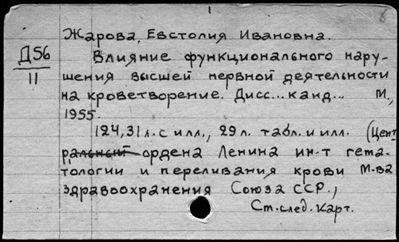 1
Жарова, Евстолия Ивановна.
Д56
11
Влияние функционального нару-
шения высшей нервной деятельности
на кроветворение. Дисс... канд... М.,
1955.
124, 31 л. с илл., 29 л. табл. и илл. (Цент
ральный ордена Ленина ин-т гема-
тологии и переливания крови М-ва
здравоохранения Союза ССР.,
См. след. карт.